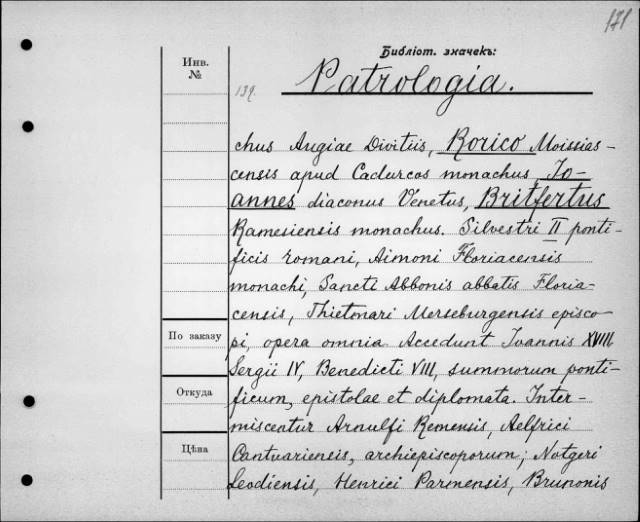 171
Библіот. значекъ:
Инв.
№
139.
Patrologia.
chus Augiae Divitiis, Rorico Moissia-
censis apud Cadurcos monachus, Jo-
annes diaconus Venetus, Britfertus
Ramesiensis monachus. Silvestri II ponti-
ficis romani, Aimoni Floriacensis
monachi, Sancti Abbonis abbatis Floria-
censis, Thietmari Merseburgensis episco-
По заказу
pi, opera omnia Accedunt Joannis XVIII
Sergii IV, Benedicti VIII, summorum ponti-
Откуда
ficum, epistolae et diplomata. Inter-
miscentur Arnulfi Remensis, Aelfrici
Цѣна
Cantuariensis, archiepiscoporum; Notgeri
Leodiensis, Henrici Parmensis, Brunonis